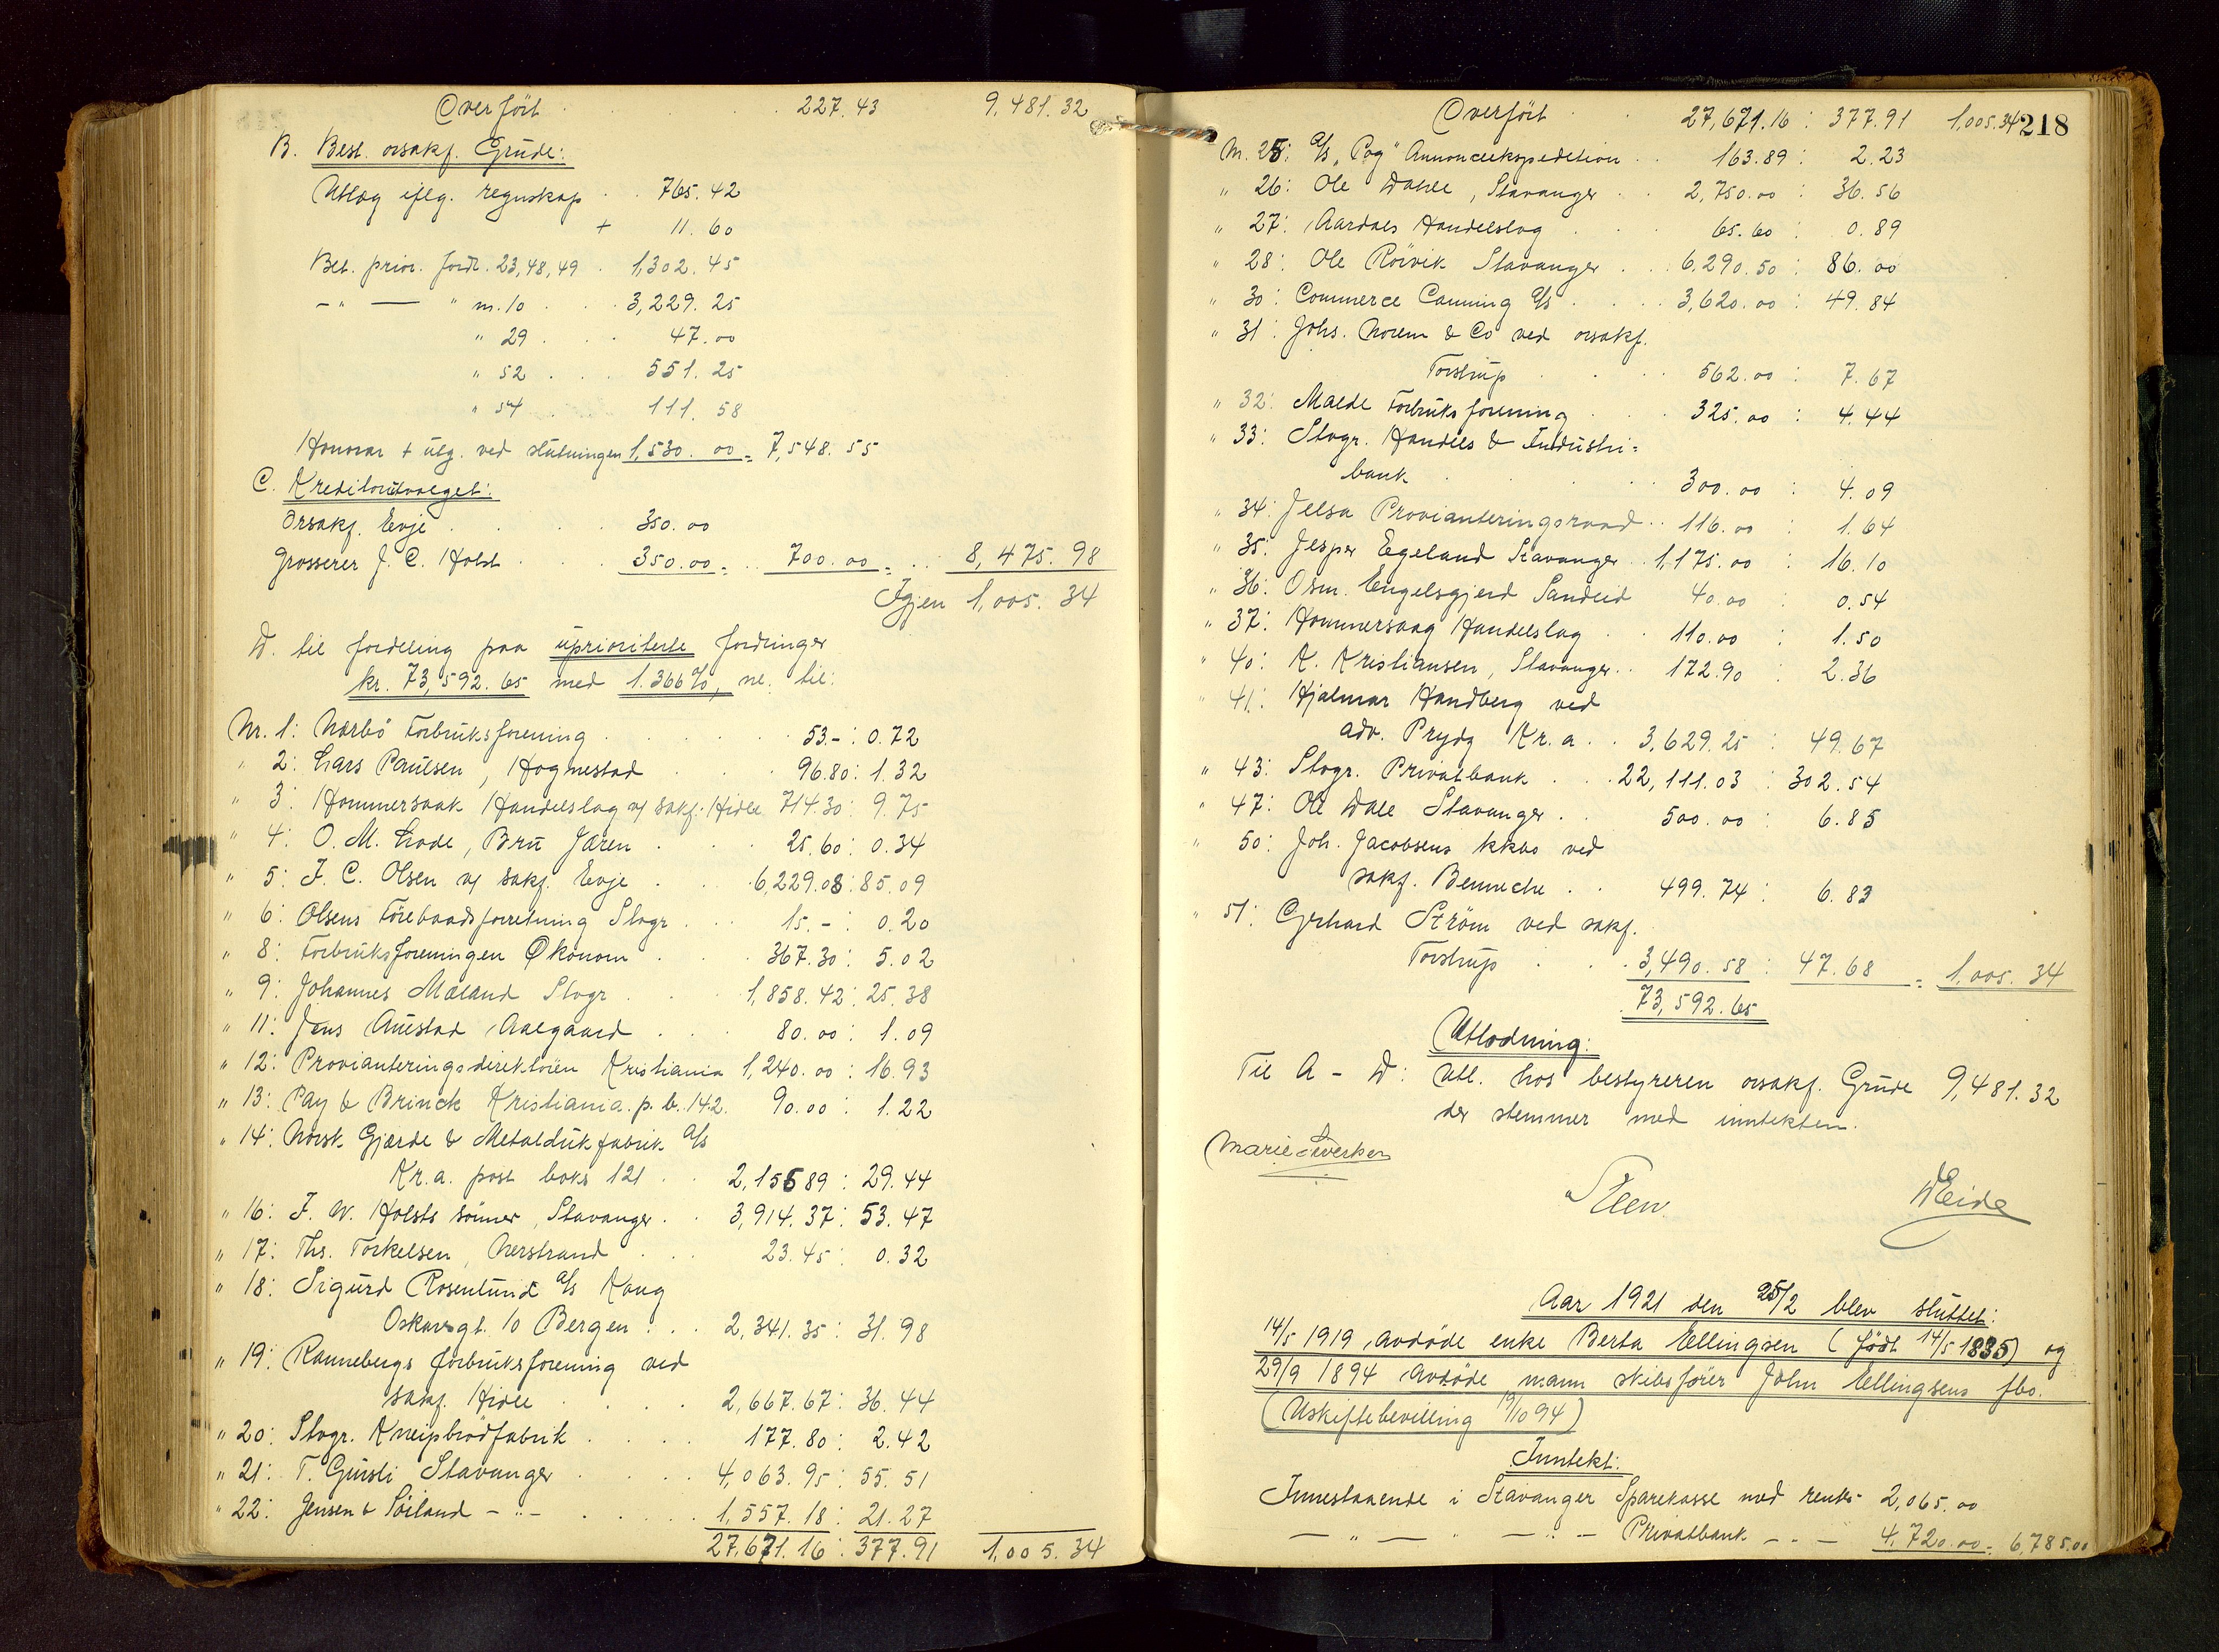 Overført . . . . 227.43 9,481.32
B. Best. orsakf. Grude:
Utlæg eflg. regnskap . . 765.42
+ 11.60
Bet. prior. fordr. 23,48,49 . 1,302.45
-"- — " nr. 10 . . . 3,229.25
" 29 . . . 47.00
" 52 . . . 551.25
" 54 . . 111.58
Honorar + utg. ved slutningen 1,530.00 = 7,548.55
C. Kreditorutvalget:
Orsakf. Evje . . . . 350.00
Grosserer J. C. Holst . . . 350.00 = . . 700.00 = . . 8,475.98
Igjen 1,005.34
D. til fordeling paa uprioriterte fordringer
kr. 73,592.65 med 1.366 %, nl. til:
Nr. 1: Nærbø Forbruksforening . . . . . . 53.- : 0.72
" 2: Lars Paulsen, Hognestad . . . 96.80 : 1.32
" 3: Hommersaak Handelslag v/ sakf. Hidle 714.30 : 9.75
" 4: O. M. Lode, Bru Jæren . . . 25.60 : 0.34
" 5: F. C. Olsen v/ sakf. Evje . . . 6,229.08 : 85.09
" 6: Olsens Törebaadsforretning Stvgr . . 15.- : 0.20
" 8: Forbruksforeningen Økonom . . . 367.30 : 5.02
" 9: Johannes Mæland Stvgr . . . 1,858.42 : 25.38
" 11: Jens Austad Aalgaard . . . 80.00 : 1.09
" 12: Provianteringsdirektøren Kristiania 1,240.00 : 16.93
" 13: Pay & Brinck Kristiania. p. b. 142. 90.00 : 1.22
" 14: Norsk Gjærde & Metaldukfabrik A/s
Kr.a. post boks 121 . . 2,155.89 : 29.44
" 16: F. W. Holsts sønner, Stavanger . . 3,914.37 : 53.47
" 17: Ths. Torkelsen, Nerstrand . . . 23.45 : 0.32
" 18: Sigurd Rosenlund A/s Kong
Oskarsgt. 10 Bergen . . . 2,341.35 : 31.98
" 19: Rannebergs forbruksforening ved
sakf. Hidle . . . . 2,667.67 : 36.44
" 20: Stvgr. Kneipbrødfabrik . . . . 177.80 : 2.42
" 21: T. Gursli Stavanger . . . . 4,063.95 : 55.51
" 22: Jensen & Söiland - " - . . . . . 1,557.18 : 21.27
27,671.16 : 377.91 1,005.34
Overført . . 27,671.16 : 377.91 1,005.34 218
Nr. 25: A/s "Pog" Annonceekspedition . . 163.89 : 2.23
" 26: Ole Dahle, Stavanger . . 2,750.00 : 36.56
" 27: Aardals Handelslag . . . 65.60 : 0.89
" 28: Ole Röivik Stavanger . . . 6,290.50 : 86.00
" 30: Commerce Canning A/s . . . . 3,620.00 : 49.84
" 31: Johs. Norem & Co ved orsakf.
Torstrup . . . . 562.00 : 7.67
" 32: Malde Forbruksforening . . . 325.00 : 4.44
" 33: Stvgr. Handels & Industri=
bank . . . . . 300.00 : 4.09
" 34: Jelsa Provianteringsraad . . 116.00 : 1.64
" 35: Jesper Egeland Stavanger . . 1,175.00 : 16.10
" 36: Osm. Engelsgjerd Sandeid 40.00 : 0.54
" 37: Hommersaag Handelslag . . 110.00 : 1.50
" 40: K. Kristiansen, Stavanger . . 172.90 : 2.36
" 41: Hjalmar Handberg ved
adv. Prydz Kr.a. . . 3,629.25 : 49.67
" 43: Stvgr. Privatbank . . . 22,111.03 : 302.54
" 47: Ole Dale Stavanger . . 500.00 : 6.85
" 50: Joh. Jacobsens kkbo ved
sakf. Benneche . . 499.74 : 6.83
" 51: Gerhard Ström ved sakf.
Torstrup . . . 3,490.58 : 47.68 = 1,005.34
73,592.65
Utlodning:
Til A - D: Utl. hos bestyreren orsakf. Grude 9,481.32
der stemmer med inntekten.
Marie Sverken
Steen
D Eide
Aar 1921 den 25/2 blev sluttet:
14/5 1919 avdøde enke Berta Ellingsen (født 14/5 1835) og
29/9 1894 avdøde mann skibsfører John Ellingsens fbo.
(Uskiftebevilling 19/10 94)
Inntekt:
Innestaaende i Stavanger Sparekasse med renter 2,065.00
— " — " — " — Privatbank - . . — 4,720.00 = 6,785.00